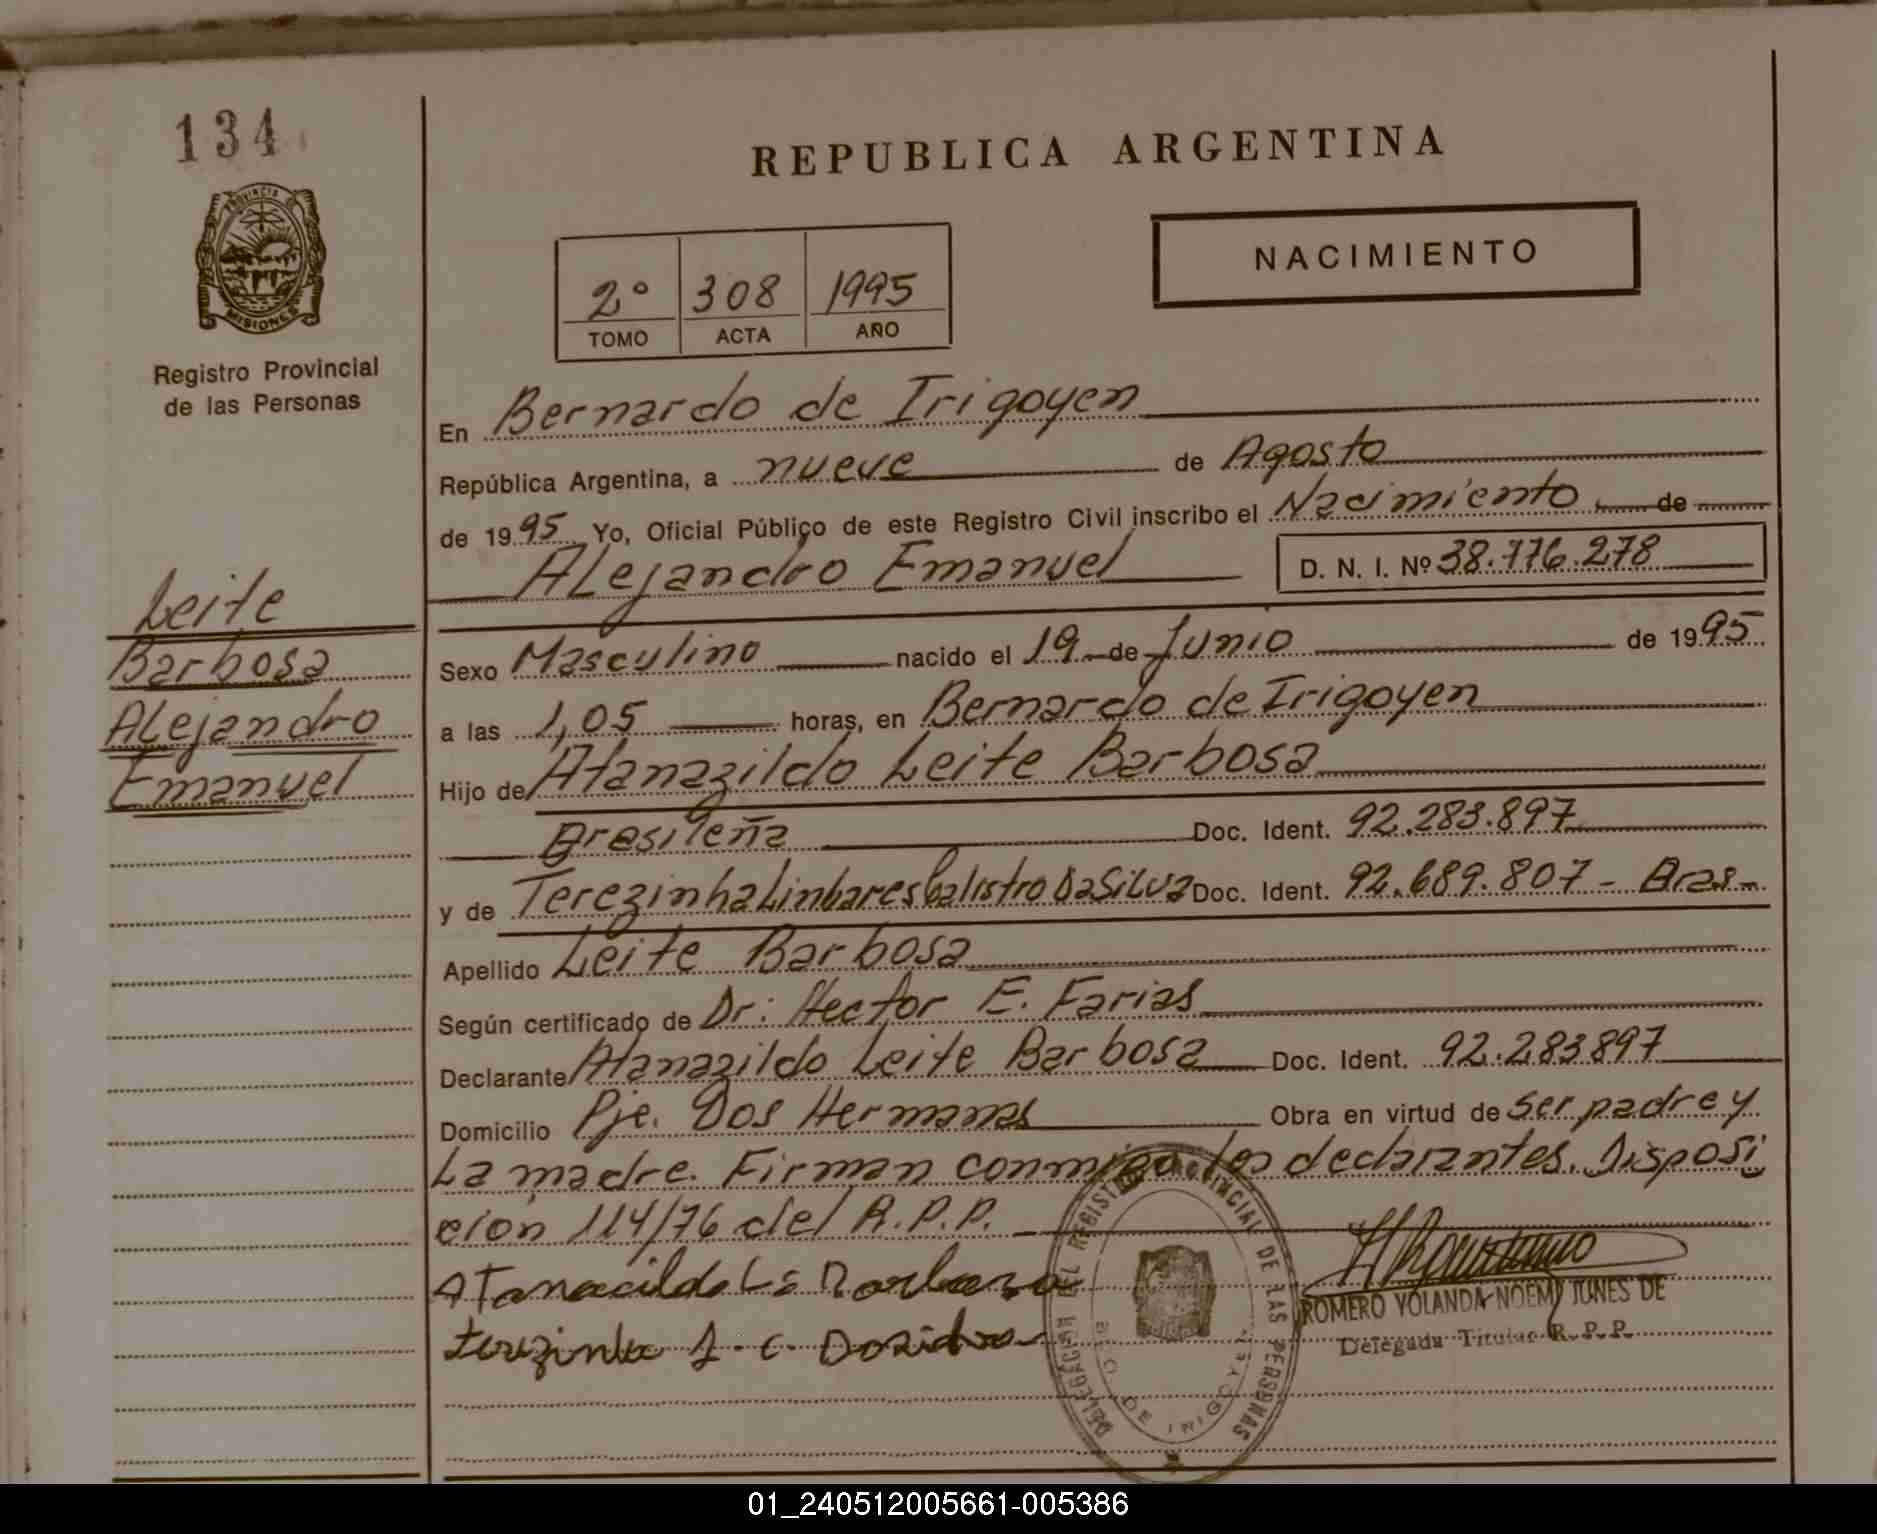 134
PROVINCIA DE
MISIONES
Registro Provincial
de las Personas
Leite
Barbosa
Alejandro
Emanuel
REPUBLICA ARGENTINA
NACIMIENTO
2° 308 1995
TOMO ACTA AÑO
En Bernardo de Irigoyen
República Argentina, a nueve de Agosto
de 1995 Yo, Oficial Público de este Registro Civil inscribo el Nacimiento de
Alejandro Emanuel D. N. I. Nº 38.776.278
Sexo Masculino nacido el 19 de Junio de 1995
a las 1,05 horas, en Bernardo de Irigoyen
Hijo de Atanazildo Leite Barbosa
Brasileña Doc. Ident. 92.283.897
y de Terezinha Linhares Calistro Da Silva Doc. Ident. 92.689.807 - Bras-
Apellido Leite Barbosa
Según certificado de Dr: Hector E. Farias
Declarante Atanazildo Leite Barbosa Doc. Ident. 92.283897
Domicilio Pje. Dos Hermanas Obra en virtud de ser padre y
La madre. Firman conmigo los declarantes. Disposi
cion 114/76 del R.P.P.
ROMERO YOLANDA NOEMI JUNES DE
Delegada Titular R.P.P.
DELEGACION DEL REGISTRO PROVINCIAL DE LAS PERSONAS
BDO DE IRIGOYEN
01_240512005661-005386